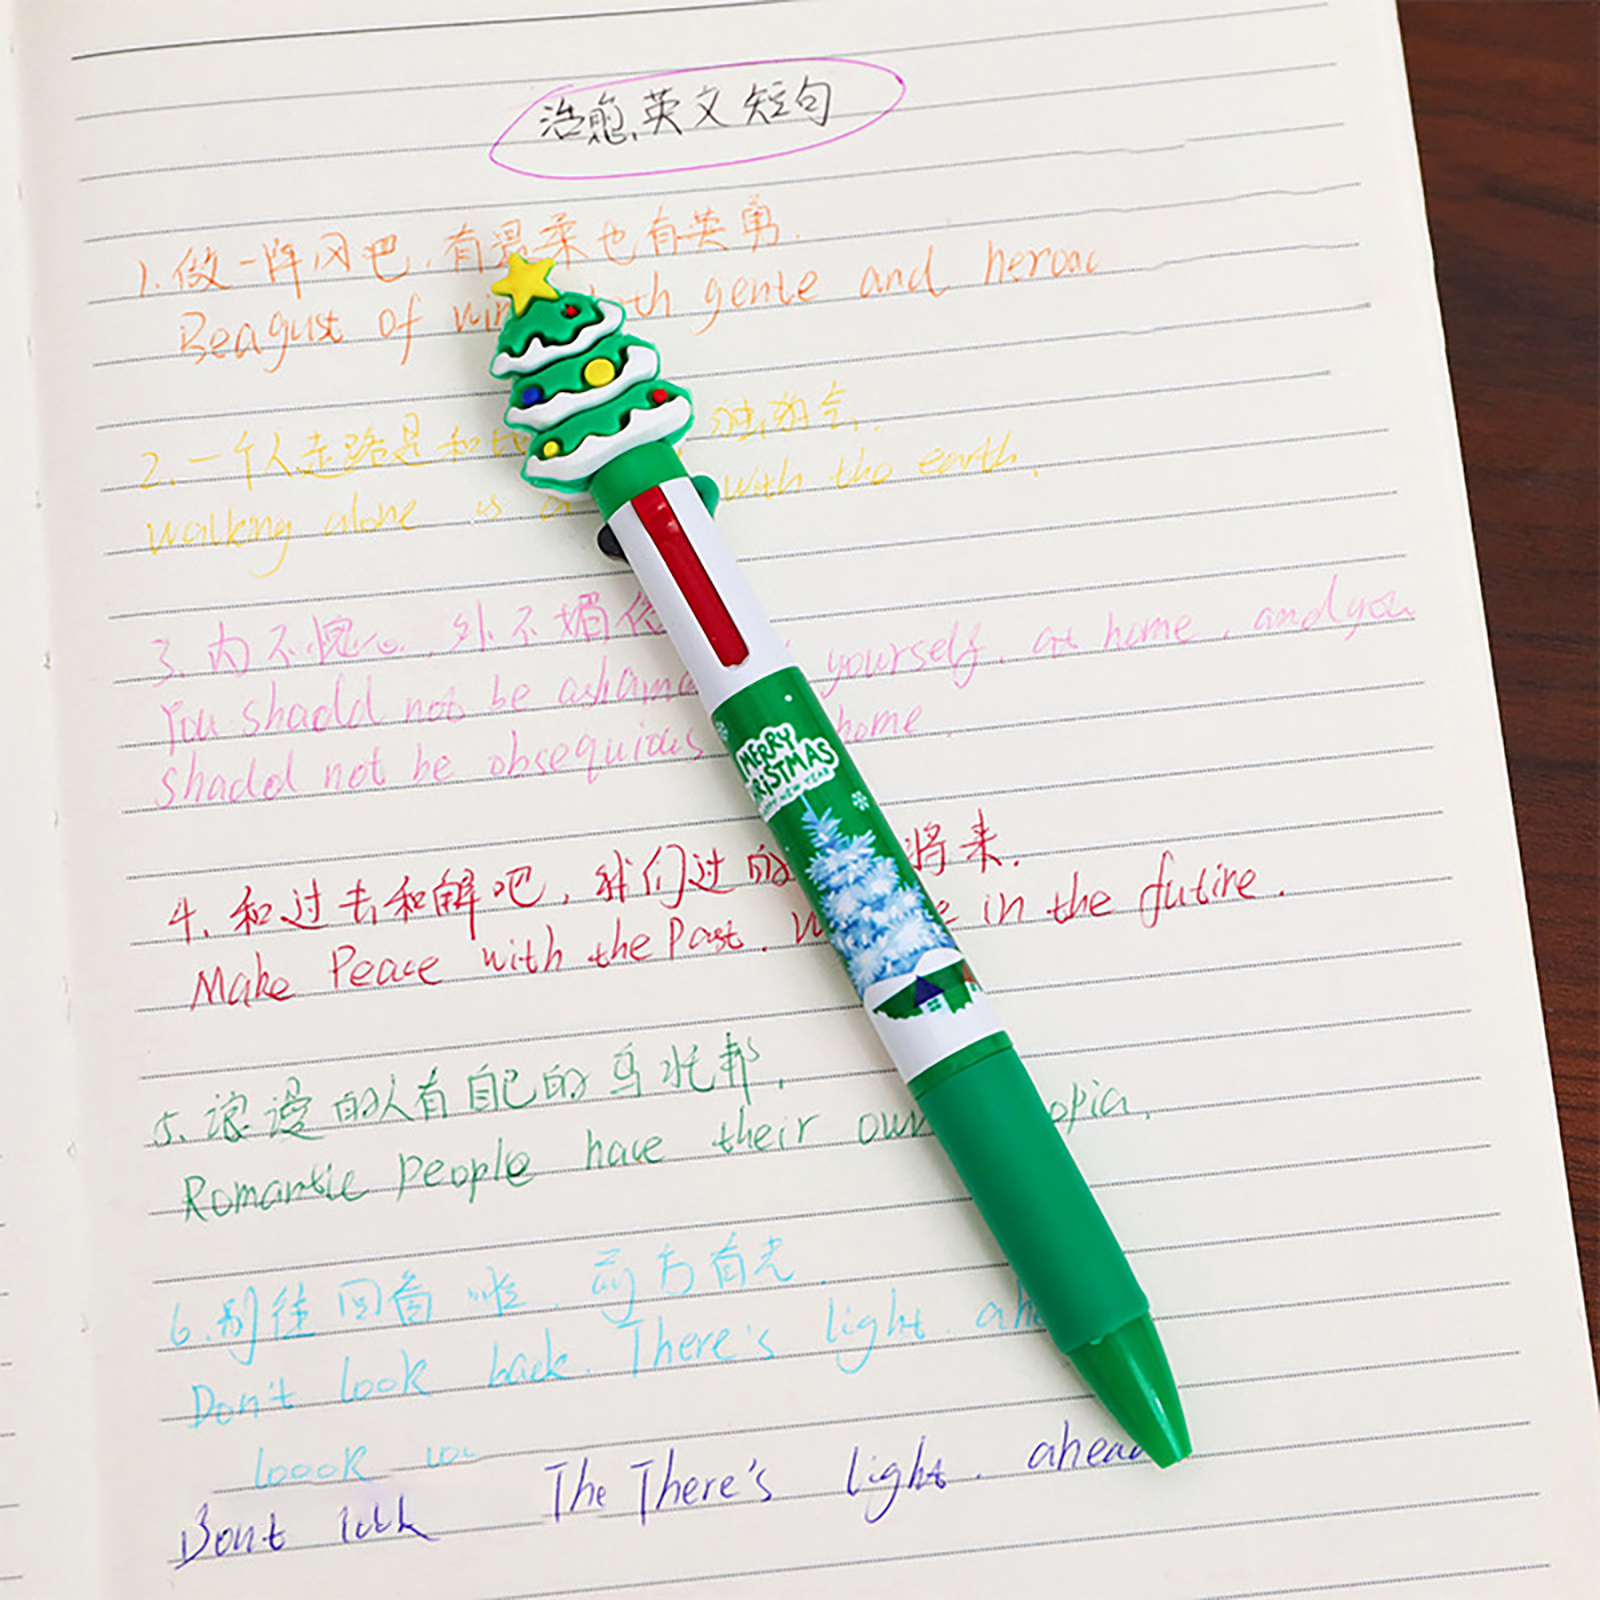 治愈英文短句
1.做一阵风吧,有温柔也有英勇.
Beagust of win th gentle and heroic
2.一个人走路是和 独约会.
walking alone is a with the earth.
3.内不愧心,外不媚俗
You shadd not be ashame yourself. at home, and you
shadd not be obsequious home.
4.和过去和解吧,我们过的 将来.
Make Peace with the Past. W e in the futire.
5.浪漫的人有自己的乌托邦,
Romantic People have their own opia,
6.别往回看啦.前方有光.
Don't look back. There's light. ahe
loook
Dont lokk The There's light. ahead
MERRY
RISTMAS
NEW YEAR